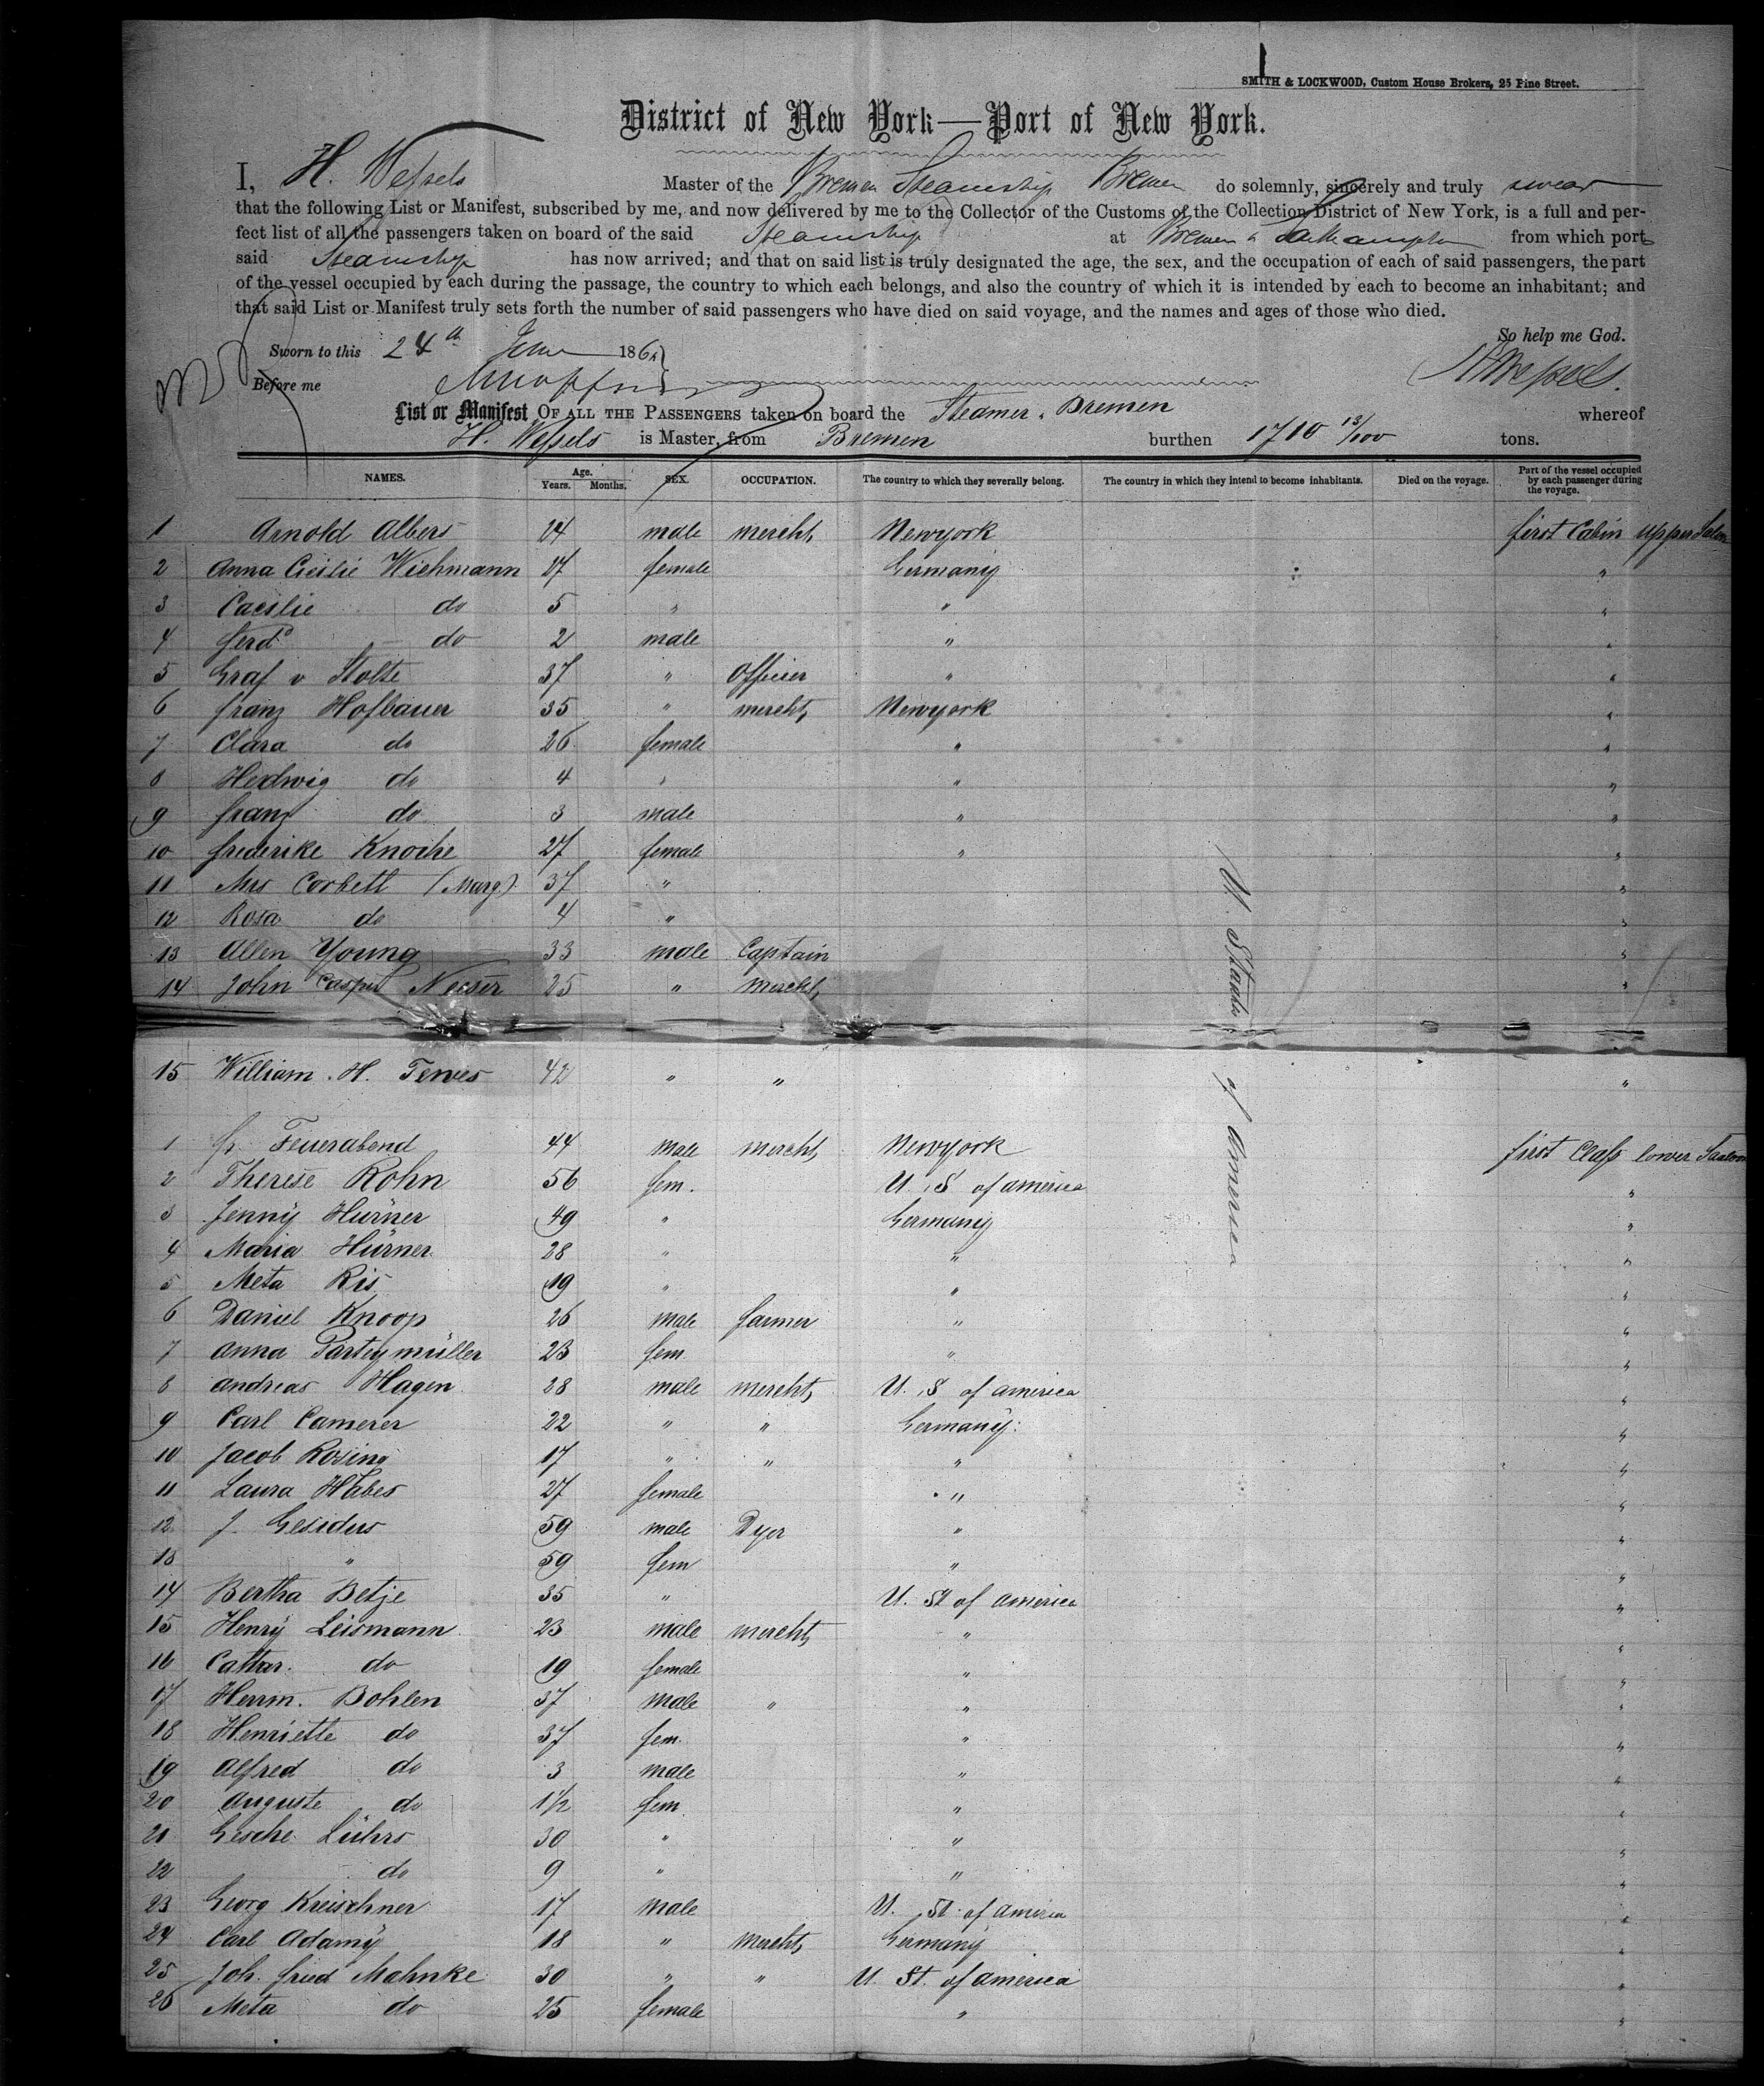 SMITH & LOCKWOOD, Custom House Brokers, 25 Pine Street.
District of New York—Port of New York.
I, H. Wessels Master of the Bremen Steamship Bremen do solemnly, sincerely and truly swear
that the following List or Manifest, subscribed by me, and now delivered by me to the Collector of the Customs of the Collection District of New York, is a full and per-
fect list of all the passengers taken on board of the said Steamship at Bremen & Southampton from which ports
said Steamship has now arrived; and that on said list is truly designated the age, the sex, and the occupation of each of said passengers, the part
of the vessel occupied by each during the passage, the country to which each belongs, and also the country of which it is intended by each to become an inhabitant; and
that said List or Manifest truly sets forth the number of said passengers who have died on said voyage, and the names and ages of those who died.
So help me God.
Sworn to this 24th June 186
HWessels.
Before me
List or Manifest OF ALL THE PASSENGERS taken on board the Steamer Bremen whereof
H. Wessels is Master, from Bremen burthen 1710 13/100 tons.
NAMES. Age. Years. Months. SEX. OCCUPATION. The country to which they severally belong. The country in which they intend to become inhabitants. Died on the voyage. Part of the vessel occupied by each passenger during the voyage.
1 Arnold Albers 24 male mercht, Newyork first Cabin upper Salon
2 Anna Cicilie Wichmann 27 female Germany "
3 Caecilie do 5 " " "
4 Ferdd do 2 male " "
5 Graf v Stolte 37 " Officer " "
6 Franz Hofbauer 35 " mercht, Newyork "
7 Clara do 26 female " "
8 Hedwig do 4 " " "
9 Franz do 3 male " "
10 Frederike Knoche 27 female " "
11 Mrs Corbett (Marg.) 37 " "
12 Rosa do 4 " "
13 Allen Young 33 male Captain "
14 John Casper Neeser 25 " mercht, "
U. States of America
15 William H. Tewes 42 " " "
1 Fr. Feuerabend 44 male mercht, Newyork first Class lower Saloon
2 Therese Rohn 56 fem. U. S of america "
3 Jenny Hürner 49 " Germany "
4 Maria Hürner 28 " " "
5 Meta Ris 19 " " "
6 Daniel Knoop 26 male farmer " "
7 Anna Parteymüller 23 fem " "
8 Andreas Hagen 28 male mercht, U. S of america "
9 Carl Camerer 22 " " Germany "
10 Jacob Rosing 17 " " " "
11 Laura Habes 27 female " "
12 J. Gesidus 59 male Dyer " "
13 " 59 fem " "
14 Bertha Betje 35 " U. St of america "
15 Henry Leismann 23 male mercht, " "
16 Cathar. do 19 female " "
17 Herrm. Bohlen 37 male " " "
18 Henriette do 37 fem. " "
19 Alfred do 3 male " "
20 Auguste do 1½ fem. " "
21 Gesche Lührs 30 " " "
22 do 9 " " "
23 Georg Kreischner 17 male U. St. of america "
24 Carl Adamy 18 " mercht, Germany "
25 Joh. Fried Mahnke 30 " " U. St. of america "
26 Meta do 25 female " "